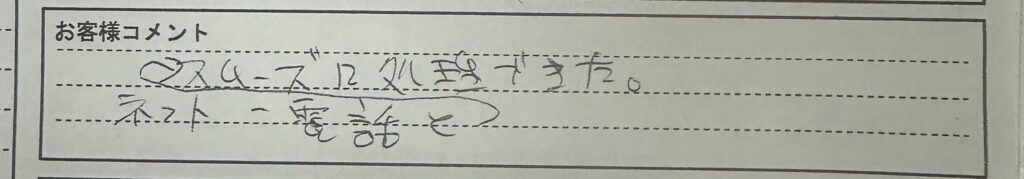 お客様コメント
スムーズに処理できた。
ネット ー 電話と